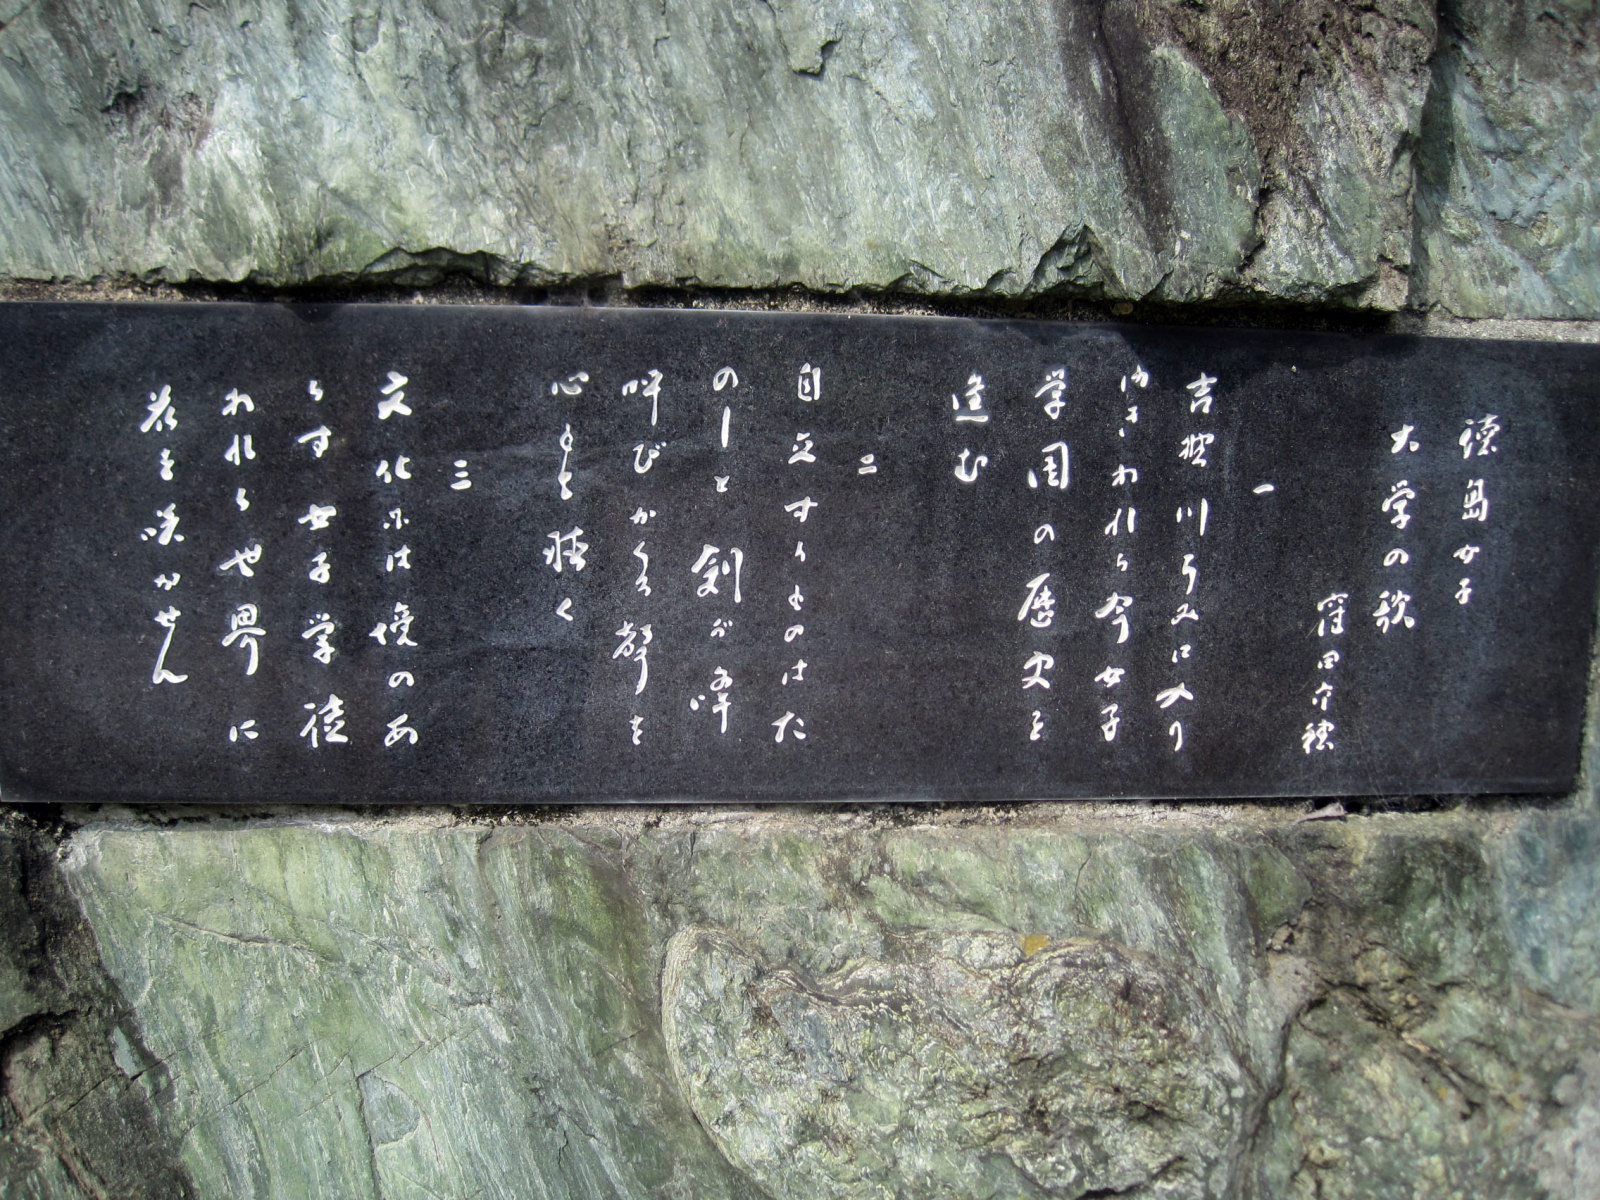 徳島女子
大学の歌
窪田空穂
一
吉野川うみに入り
ゆきわれら今女子
学園の歴史を
進む
二
自立するものはた
のしと剣が峰
呼びかくる聲を
心もて聴く
三
文化には境のあ
らず女子学徒
われら世界に
花を咲かせん